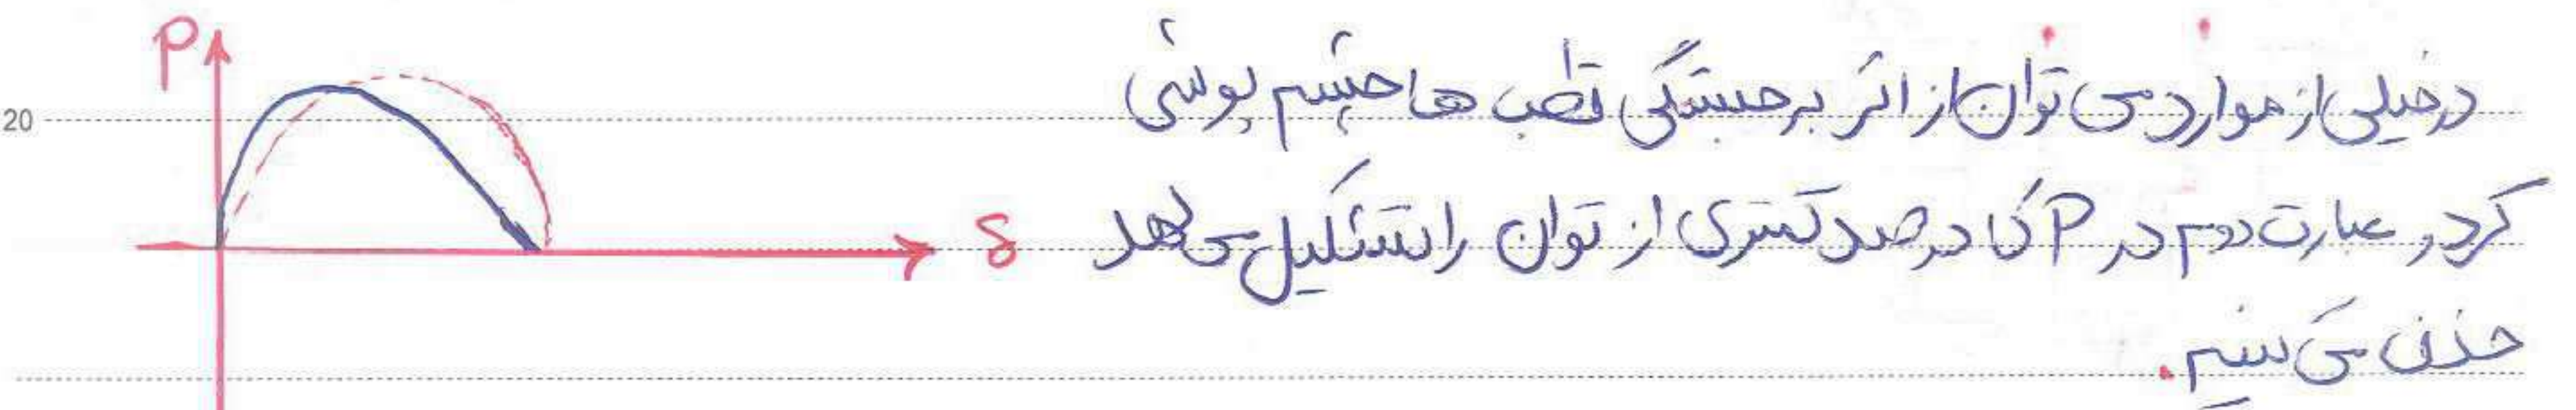 در خیلی از موارد می توان از اثر برجستگی قطب ها چشم پوشی
کرد و عبارت دوم در P که درصد کمتری از توان را تشکیل می دهد
حذف می کنیم.
P
20
δ